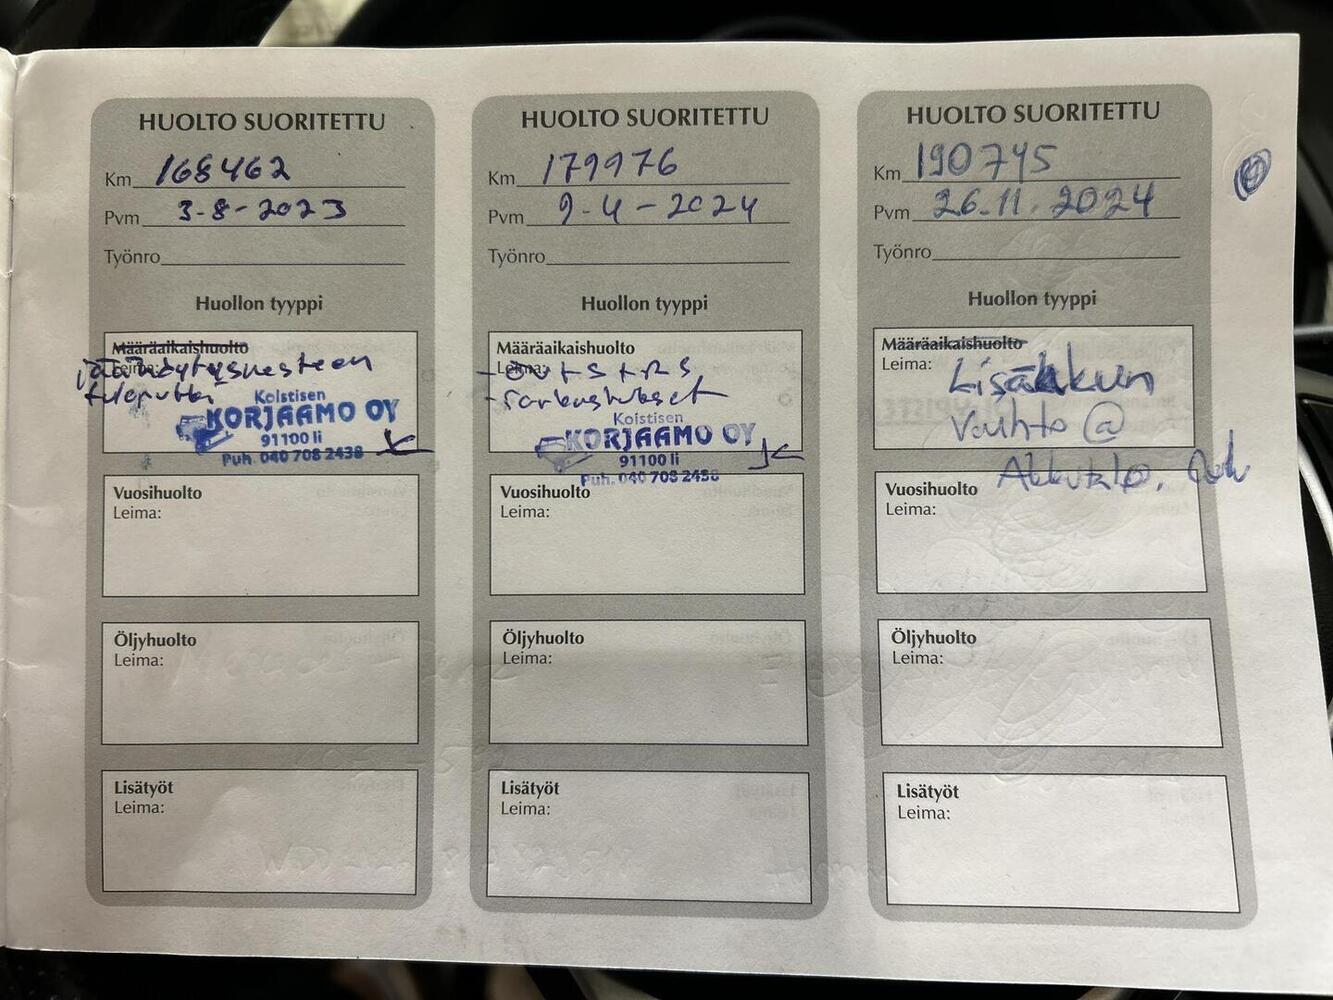 HUOLTO SUORITETTU
Km 168462
Pvm 3-8-2023
Työnro
Huollon tyyppi
Määräaikaishuolto
Leima:
jäähdytysnesteen
tuloputki
Koistisen
KORJAAMO OY
91100 Ii
Puh. 040 708 2438
Vuosihuolto
Leima:
Öljyhuolto
Leima:
Lisätyöt
Leima:
HUOLTO SUORITETTU
Km 179976
Pvm 9-4-2024
Työnro
Huollon tyyppi
Määräaikaishuolto
Leima:
Koistisen
KORJAAMO OY
91100 Ii
Puh. 040 708 2438
Vuosihuolto
Leima:
Öljyhuolto
Leima:
Lisätyöt
Leima:
HUOLTO SUORITETTU
Km 190745
Pvm 26.11.2024
Työnro
Huollon tyyppi
Määräaikaishuolto
Leima:
Lisäakun
Vaihto @
Vuosihuolto
Leima:
Öljyhuolto
Leima:
Lisätyöt
Leima: